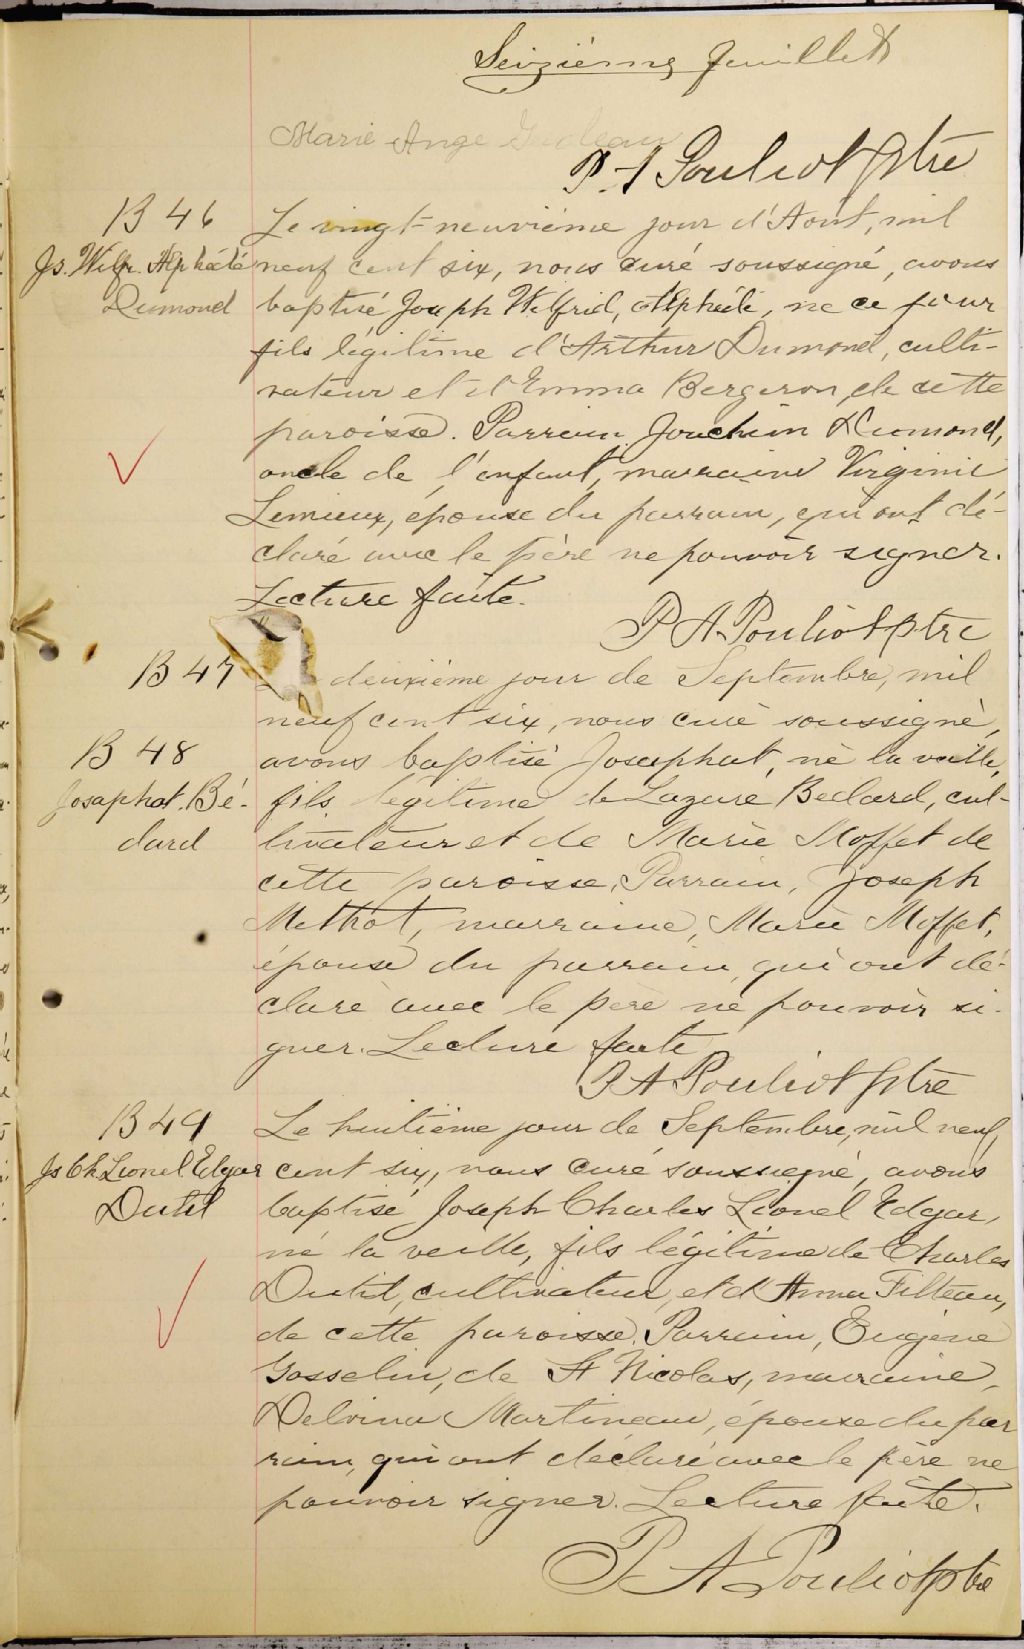 Seizième feuillet
Marie Ange
P. A Pouliot Ptre
B 46
Js. Wilfr. Alphété
Dumond
Le vingt-neuvième jour d'Aout, mil
neuf cent six, nous curé soussigné, avons
baptisé Joseph Wilfrid, né ce jour
fils légitime d'Arthur Dumond, culti-
vateur et d'Emma Bergeron, de cette
paroisse. Parrain Joachim Dumond,
oncle de l'enfant, marraine Virginie
Lemieux, épouse du parrain, qui ont dé-
claré avec le père ne pouvoir signer.
Lecture faite.
P A Pouliot Ptre
B 47
deuxième jour de Septembre, mil
neuf cent six, nous curé soussigné,
B 48
Josaphat. Bé-
dard
avons baptisé Josaphat, né la veille,
fils légitime de Lazare Bédard, cul-
tivateur et de Marie Moffet de
cette paroisse, Parrain, Joseph
Methot, marraine, Marie Moffet,
épouse du parrain, qui ont dé-
claré avec le père ne pouvoir si-
gner. Lecture faite
P A Pouliot Ptre
B 49
Js Ch Lionel Edgar
Dutil
Le huitième jour de Septembre, mil neuf
cent six, nous curé soussigné, avons
baptisé Joseph Charles Lionel Edgar,
né la veille, fils légitime de Charles
Dutil, cultivateur, et d'Anna Filteau,
de cette paroisse. Parrain, Eugène
Gosselin, de St Nicolas, marraine,
Delvina Martineau, épouse du par
rain, qui ont déclaré avec le père ne
pouvoir signer. Lecture faite.
P A Pouliot Ptre